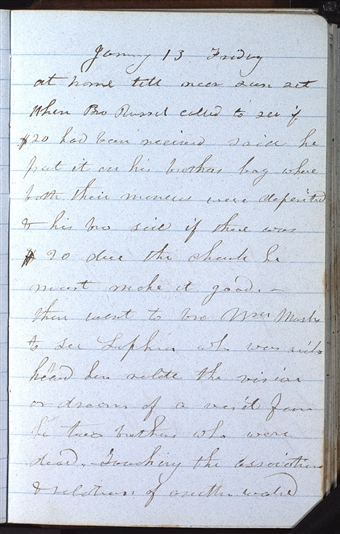 Janry 13 Friday
at home till near sun set
When Bro Russel called to see if
$20 had been received said he
put it in his brothers bag where
both their moneys were deposited
& his bro said if there was
$20 due the church he
must make it good. -
then went to bro Wm
to see who was sick
heard her relate the vision
or dream of a
two brothers who were
dead. Touching the associations
& relations of another world